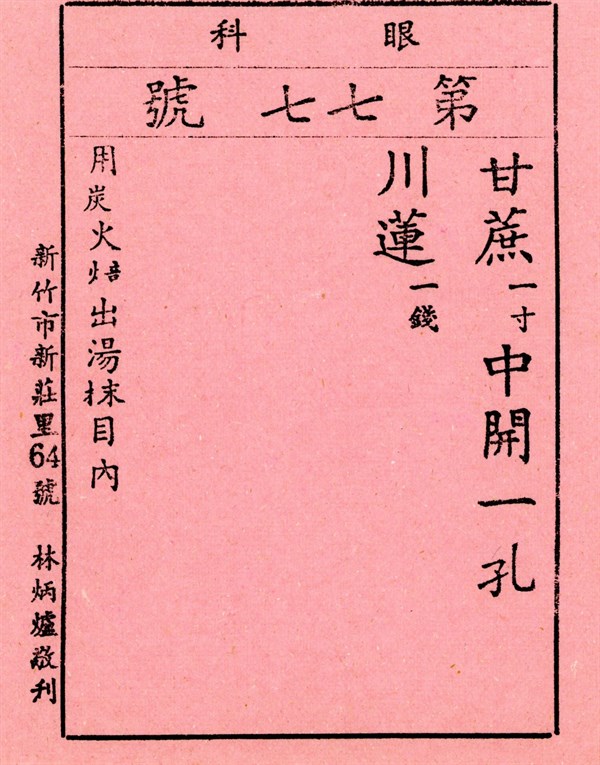 眼科
第七七號
甘蔗一寸中開一孔
川蓮一錢
用炭火焙出湯抹目內
新竹市新莊里64號 林炳爐敬刊